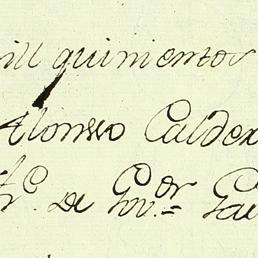 mill quinientos
Alonsso Calder
de Gov.or